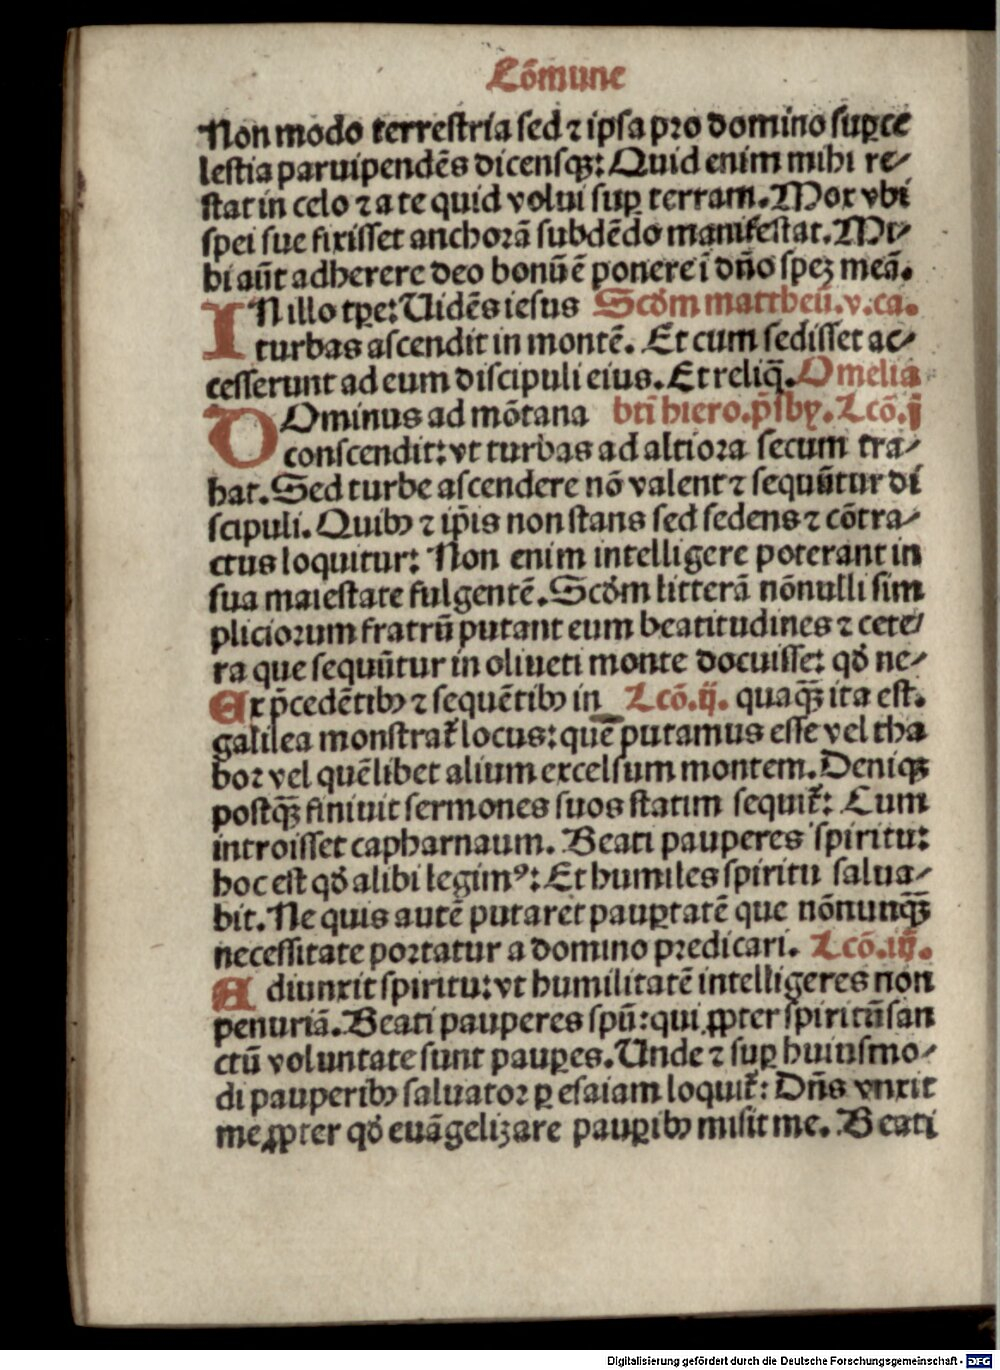 Cōmune
Non modo terrestria sed ⁊ ipsa pro domino suꝑce
lestia paruipendēs dicensqꝫ: Quid enim mihi re⸗
stat in celo ⁊ a te quid volui suꝑ terram. Mox vbi
spei sue fixisset anchorā subdēdo manifestat. Mi⸗
hi aūt adherere deo bonū ē ponere ī dn̄o speꝫ meā.
IN illo tꝑe: Uidēs iesus Scd̓m mattheū. v. ca.
turbas ascendit in montē. Et cum sedisset ac⸗
cesserunt ad eum discipuli eius. Et reliq̄. Omelia
DOminus ad mōtana bt̄i hiero. p̄sby. Lcō. j
conscendit: vt turbas ad altiora secum tra⸗
hat. Sed turbe ascendere nō valent ⁊ sequūtur di
scipuli. Quibꝰ ⁊ ip̄is non stans sed sedens ⁊ cōtra⸗
ctus loquitur: Non enim intelligere poterant in
sua maiestate fulgentē. Scd̓m litterā nōnulli sim
pliciorum fratrū putant eum beatitudines ⁊ cete⸗
ra que sequūtur in oliueti monte docuisse: qd̓ ne⸗
Ex p̄cedētibꝰ ⁊ sequētibꝰ in Lcō. ij. quaqꝫ̄ ita est.
galilea monstrat̄ locus: quē putamus esse vel tha
bor vel quēlibet alium excelsum montem. Deniqꝫ
postqꝫ̄ finiuit sermones suos statim sequit̄: Cum
introisset capharnaum. Beati pauperes spiritu:
hoc est qd̓ alibi legimꝰ: Et humiles spiritu salua⸗
bit. Ne quis autē putaret pauꝑtatē que nōnunqꝫ̄
necessitate portatur a domino predicari. Lcō. iij.
A diunxit spiritu: vt humilitatē intelligeres non
penuriā. Beati pauperes spū: qui ꝓpter spiritū san
ctū voluntate sunt pauꝑes. Unde ⁊ suꝑ huiusmo⸗
di pauperibꝰ saluator ꝑ esaiam loquit̄: Dn̄s vnxit
me ꝓpter qd̓ euāgelizare pauꝑibꝰ misit me. Beati
Digitalisierung gefördert durch die Deutsche Forschungsgemeinschaft - DFG